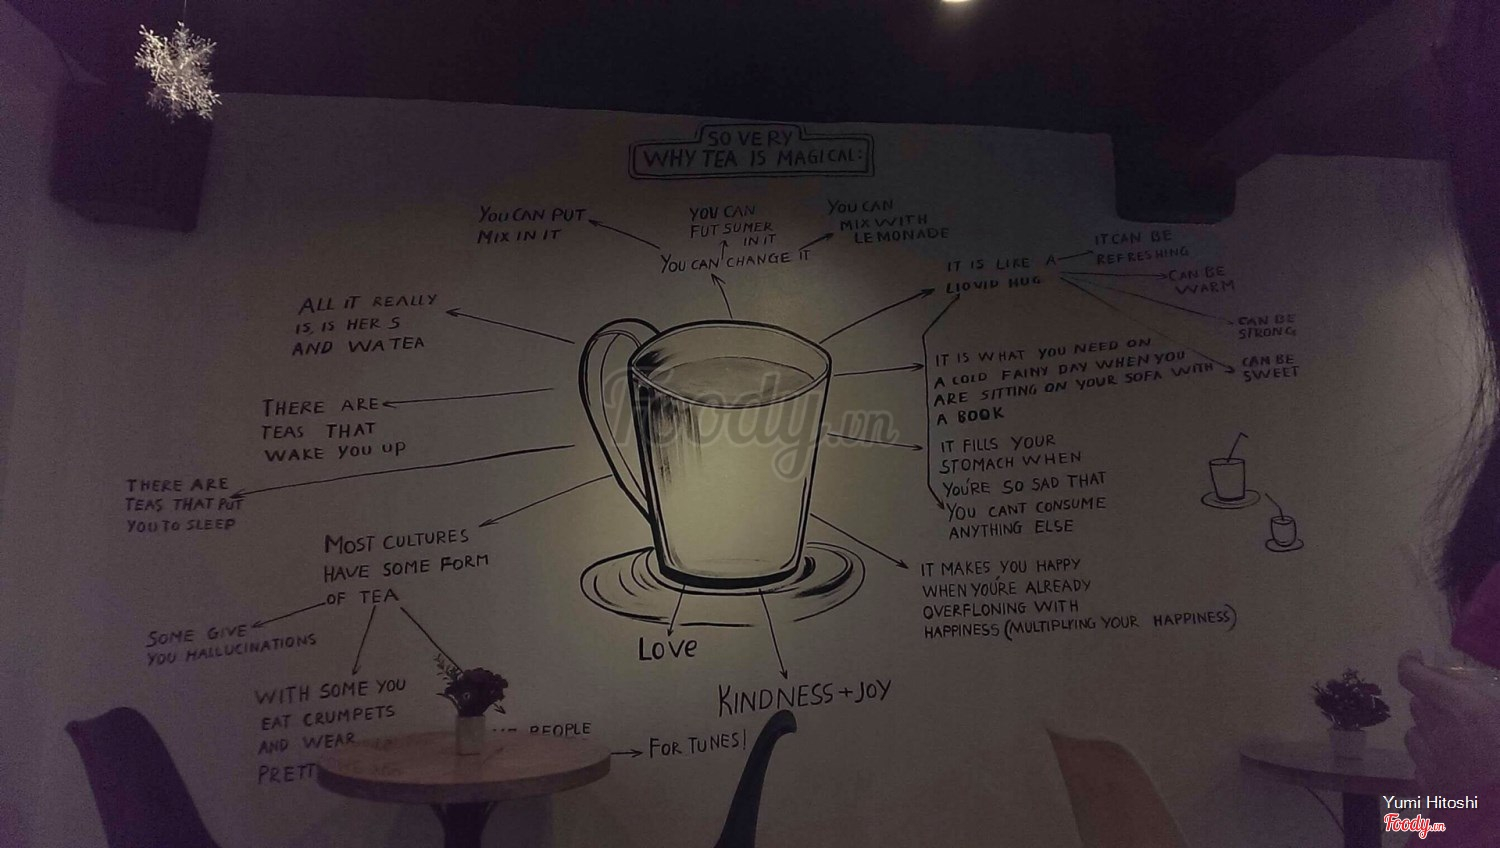 SO VERY
WHY TEA IS MAGICAL:
YOU CAN PUT
MIX IN IT
YOU CAN
FUT SUMER
IN IT
YOU CAN
MIX WITH
LEMONADE
YOU CAN CHANGE IT
IT IS LIKE A
LIQVID HUG
IT CAN BE
REFRESHING
CAN BE
WARM
CAN BE
STRONG
CAN BE
SWEET
ALL IT REALLY
IS, IS HER S
AND WATEA
THERE ARE
TEAS THAT
WAKE YOU UP
THERE ARE
TEAS THAT PUT
YOU TO SLEEP
MOST CULTURES
HAVE SOME FORM
OF TEA
SOME GIVE
YOU HALLUCINATIONS
WITH SOME YOU
EAT CRUMPETS
AND WEAR
PEOPLE
FOR TUNES!
IT IS WHAT YOU NEED ON
A COLD FAINY DAY WHEN YOU
ARE SITTING ON YOUR SOFA WITH
A BOOK
IT FILLS YOUR
STOMACH WHEN
YOU'RE SO SAD THAT
YOU CANT CONSUME
ANYTHING ELSE
IT MAKES YOU HAPPY
WHEN YOU'RE ALREADY
OVERFLONING WITH
HAPPINESS (MULTIPLYING YOUR HAPPINESS)
LOVE
KINDNESS+JOY
Foody.vn
Yumi Hitoshi
Foody.vn